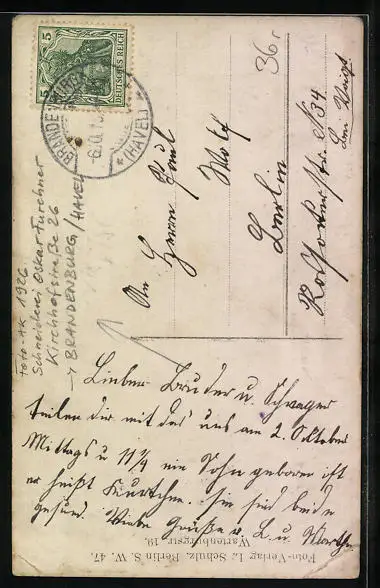 5 5
DEUTSCHES REICH
BRANDENBURG
* (HAVEL) *
36,-
An
Herrn Paul
Wolf
Berlin
N 34
bei Voigt
Foto-AK 1926
Schneiderei Oskar Furchner
Kirchhofstraße 26
→ BRANDENBURG/HAVEL
Lieber Bruder u. Schwager
teilen dir mit das uns am 2. Oktober
Mittags u 11¼ ein Sohn geboren ist
er heißt Kurtchen. sie sind beide
gesund. Viele Grüße u. L. u. Marthe
Foto-Verlag L. Schulz. Berlin S. W. 47.
Wartenburgstr. 19.